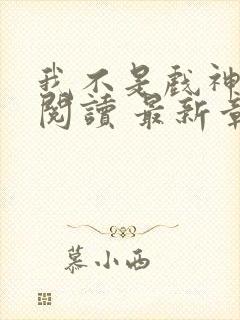 我不是戲神
閱讀 最新章
慕小西